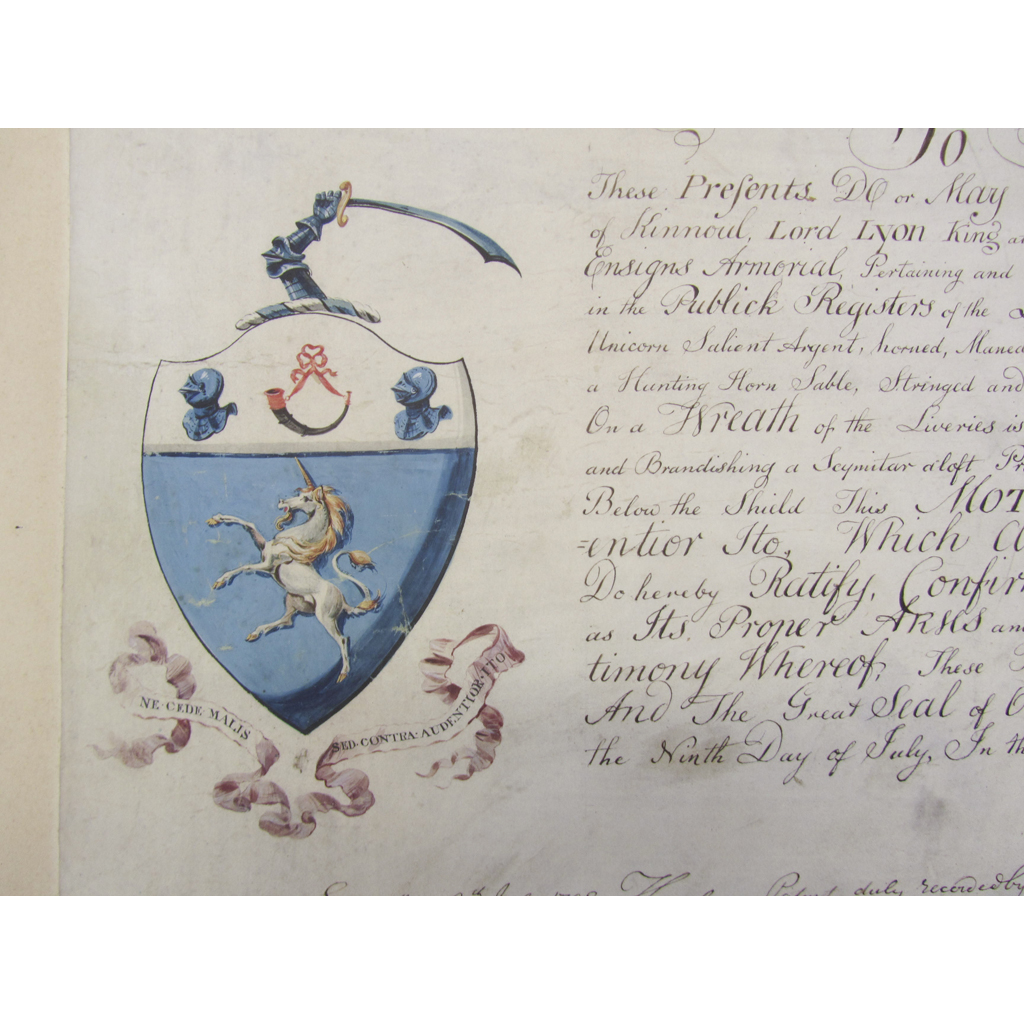 NE·CEDE·MALIS
SED·CONTRA·AUDENTIOR·ITO
To
These Presents. DO or May
of Kinnoul, Lord Lyon King
Ensigns Armorial, Pertaining and
in the Publick Registers of the
Unicorn Salient Argent, horned, Maned
a Hunting Horn Sable, Stringed and
On a Wreath of the Liveries is
and Brandishing a Scymitar aloft
Below the Shield This MOT
=entior Ito, Which
Do hereby Ratify, Confir
as Its Proper ARMS and
timony Whereof, These
And The Great Seal of
the Ninth Day of July, In the
duly recorded by